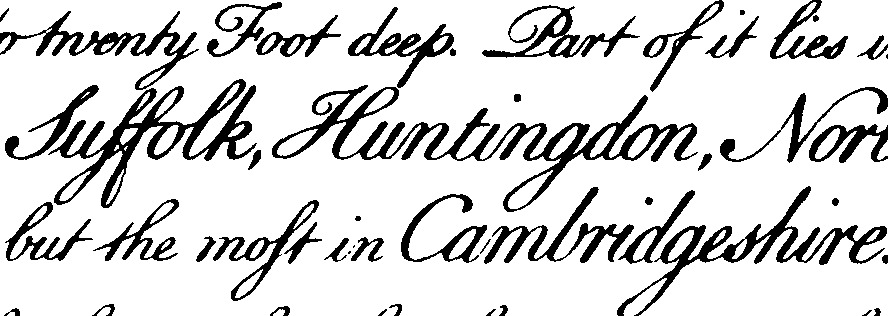 to twenty Foot deep. Part of it lies in
Suffolk, Huntingdon, Nor
but the moſt in Cambridgeshire.